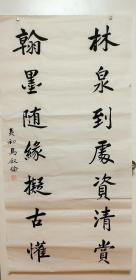 林泉到處資清賞
翰墨隨緣擬古懽
馬叙倫